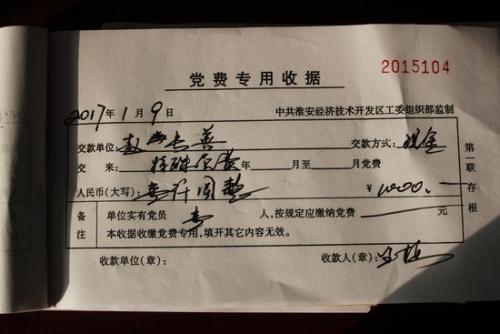 党费专用收据
2015104
2017年1月9日 中共淮安经济技术开发区工委组织部监制
交款单位： 交款方式：现金
交来：特殊党费 年 月至 月党费
人民币(大写)：壹仟圆整 ￥1000.—
备注
单位实有党员 壹 人，按规定应缴纳党费 元
本收据收缴党费专用，填开其它内容无效。
收款单位(章)： 收款人(章)：
第一联 存根